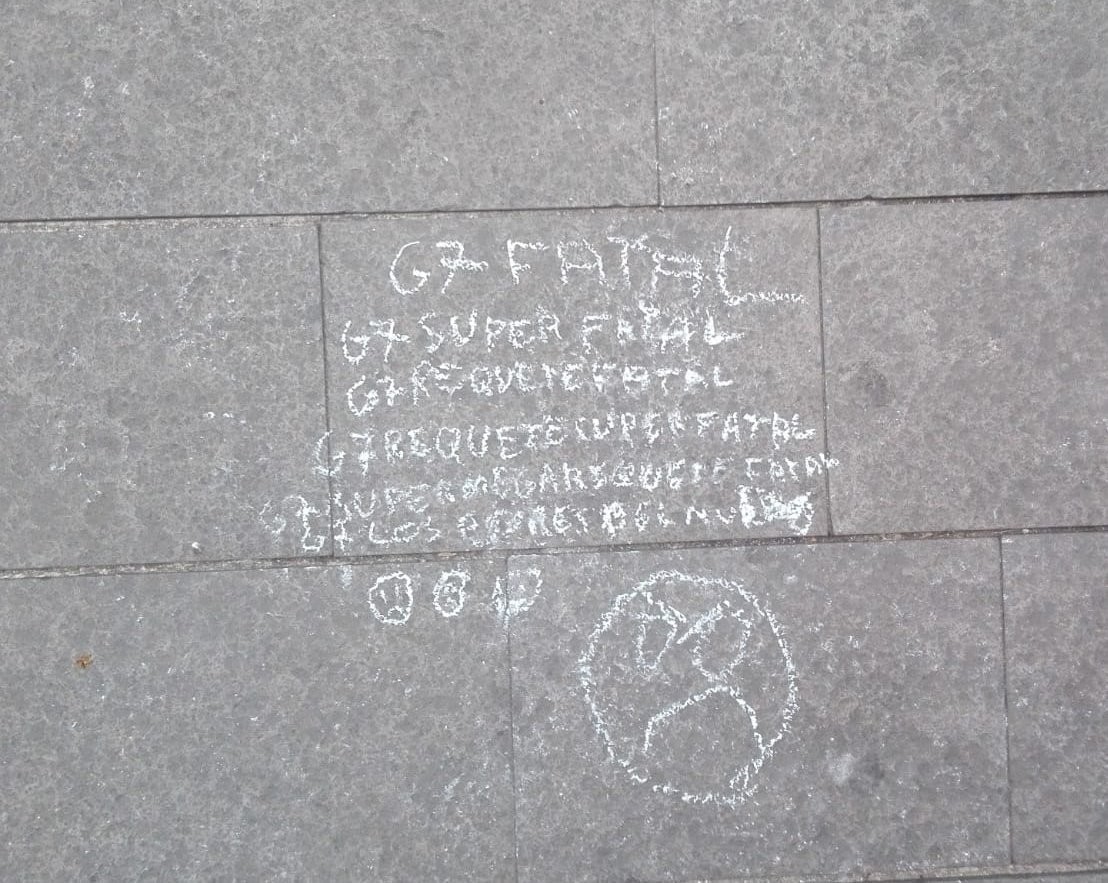 G7 FATAL
G7 SUPER FATAL
G7 REQUETEFATAL
G7 REQUETESUPERFATAL
G7 SUPERMEGAREQUETE FATAL
G7 LOS DEL